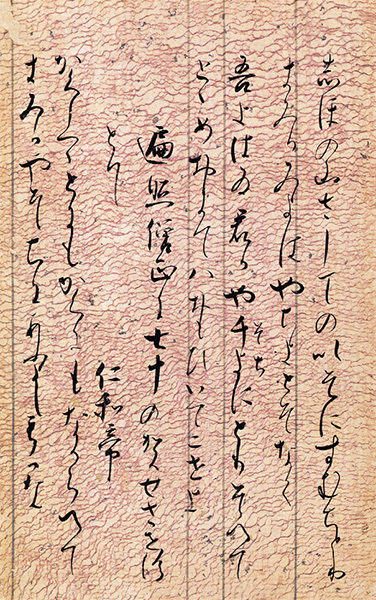 志ほの山さしてのいそにすむちとり
きみかみよをはやちよとそなく
吾よはひ君かや千よにとりそへて
そち
とゝめおきてはおもひいてにせよ
遍照僧正に七十の賀せさせ給
とて
仁和帝
かくしつゝとにもかくにもなからへて
きみかやそちにあふよしもかな